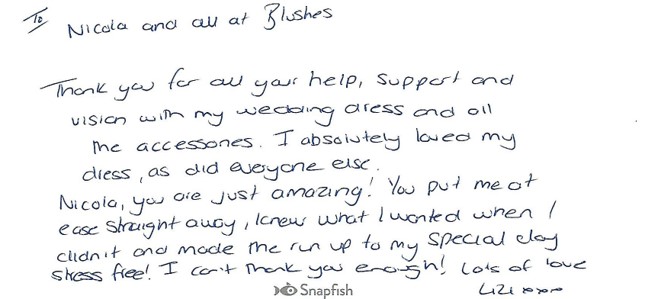 To
Nicola and all at Blushes
Thank you for all your help, support and
vision with my wedding dress and all
the accessories. I absolutely loved my
dress, as did everyone else.
Nicola, you are just amazing! You put me at
ease straight away, knew what I wanted when I
didn't and made the run up to my special day
stress free! I can't thank you enough! Lots of love
xxxx
Snapfish